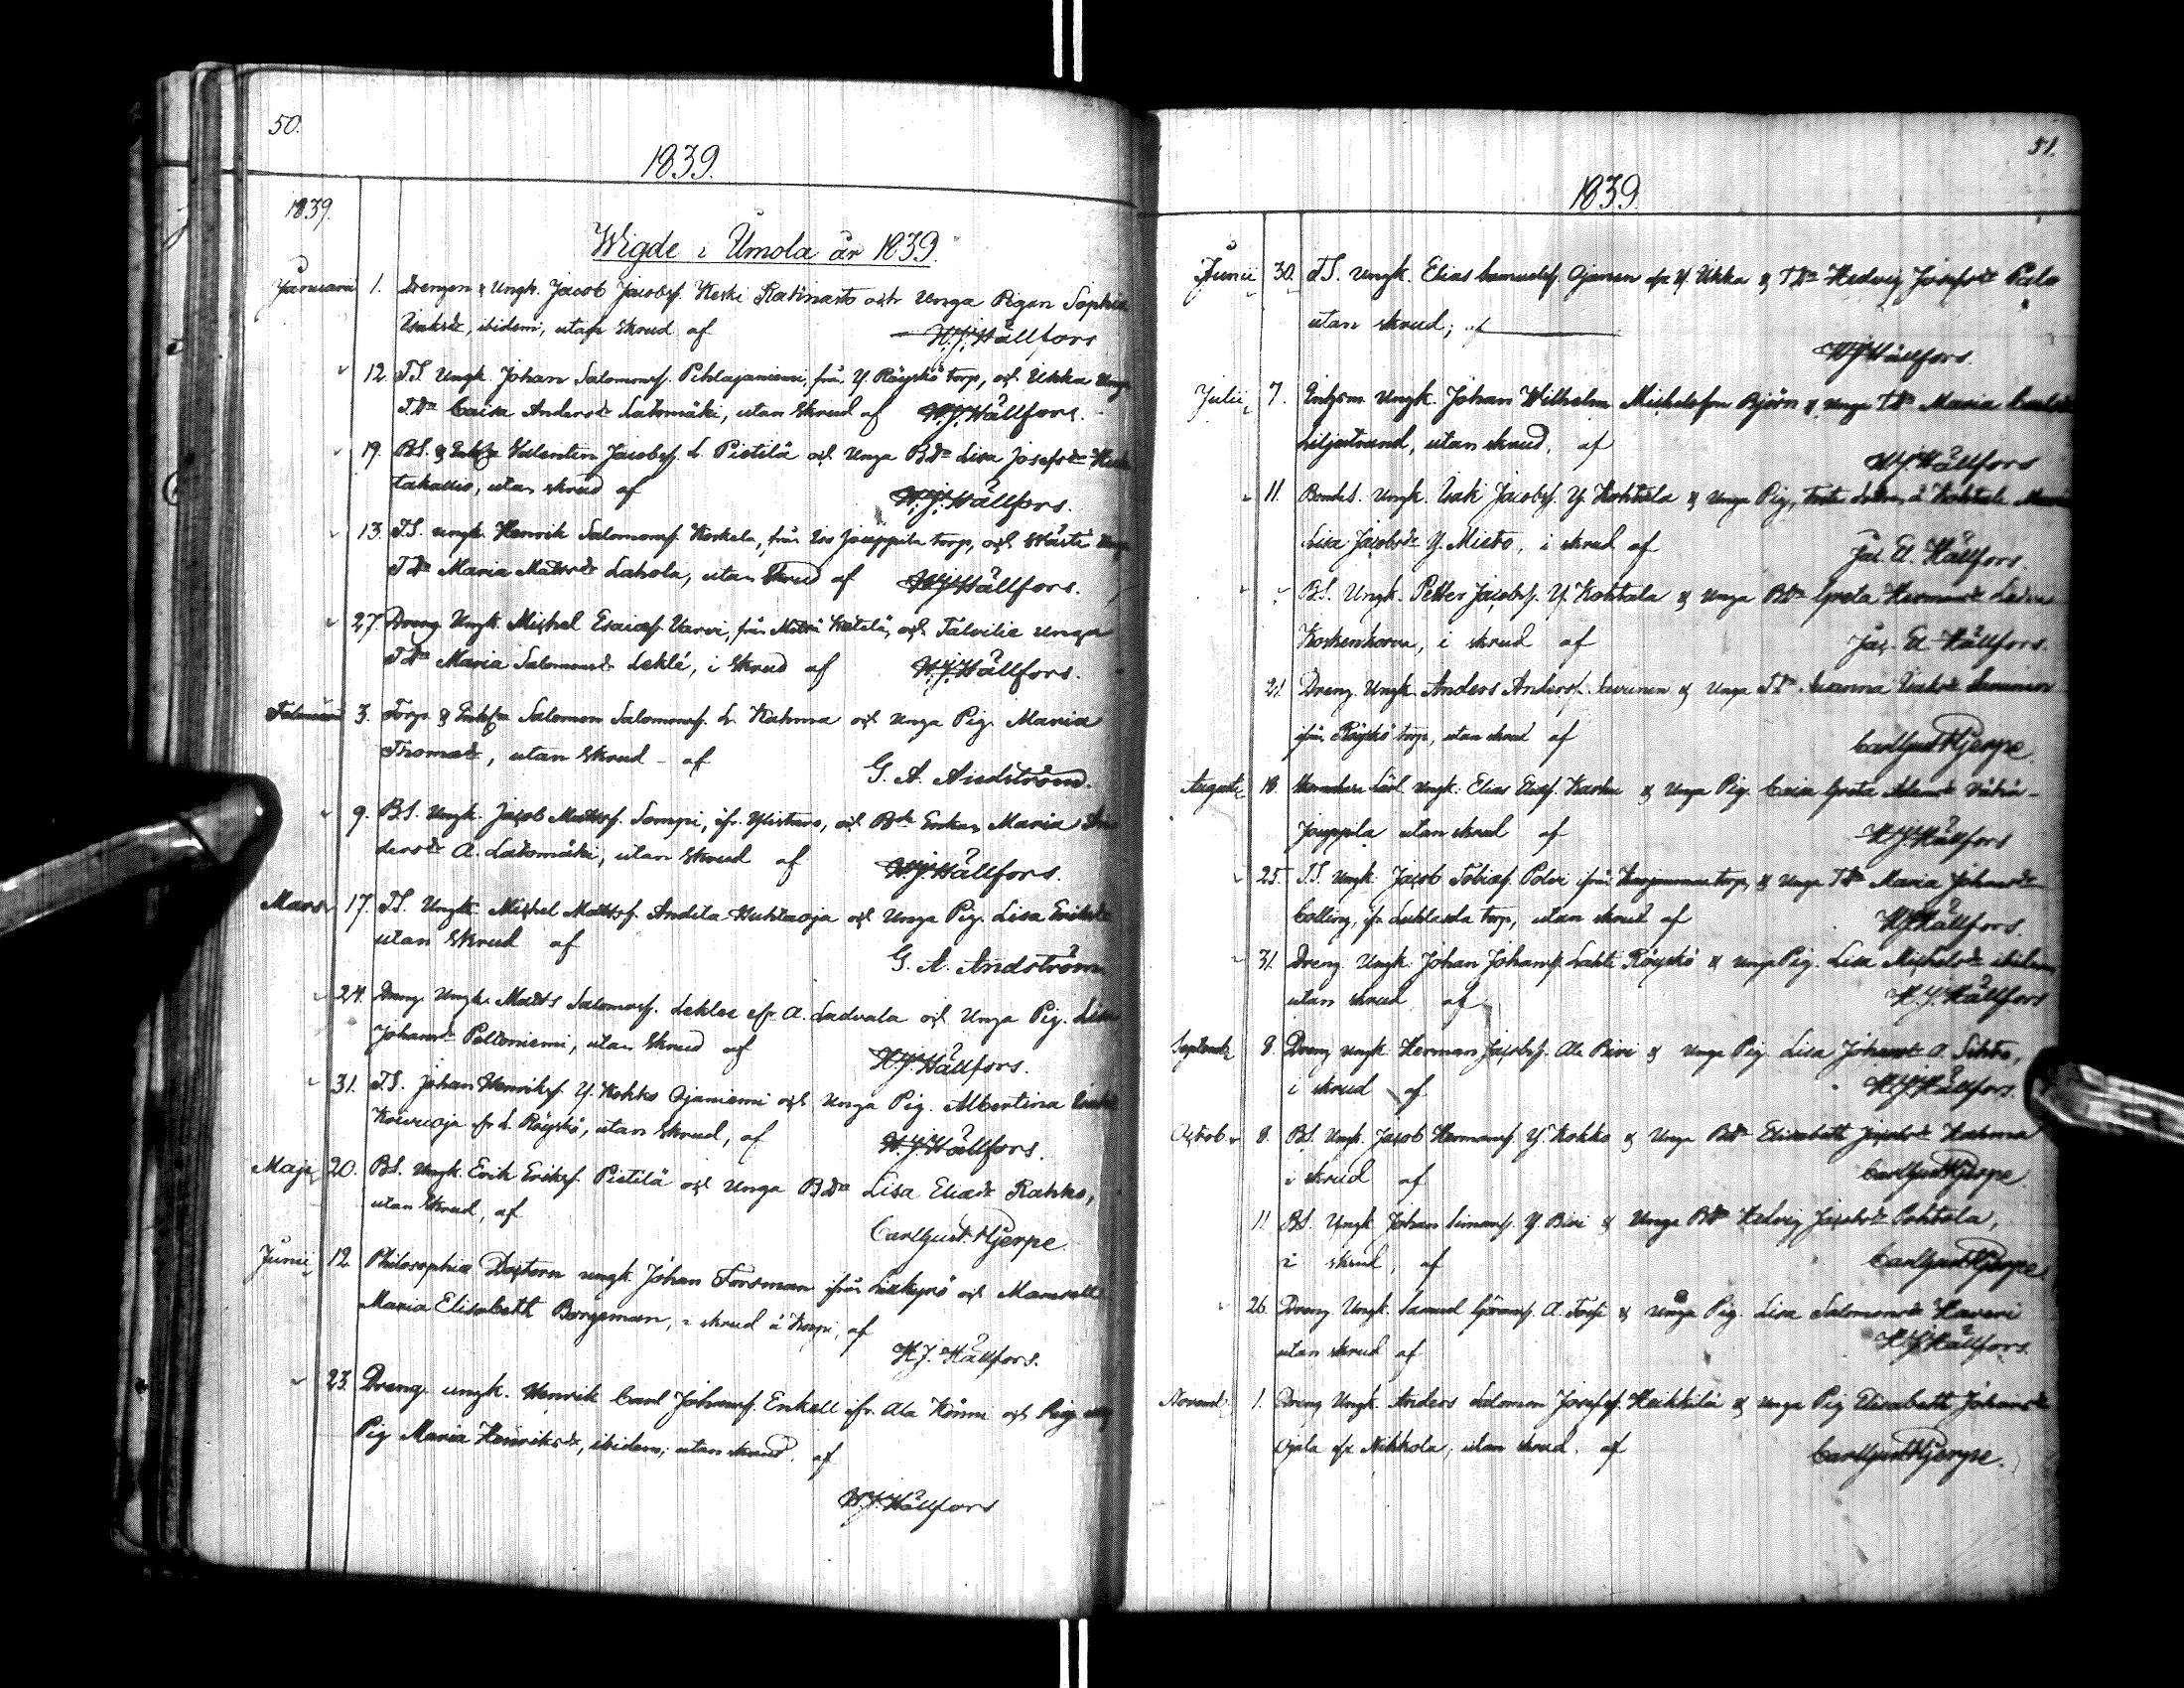 50.
1839.
1839.
Wigde i Ilmola år 1839.
Januarii 1. Drengen & Ungk. Jacob Jacobsf. Keski Ratinasto och Unga Pigan Sophia
Isaksdr, ibidem, utan Skrud af H.J. Hällfors
12. T.S. Ungk. Johan Salomonsf. Pihlajaniemi, från Y. Röyskö torp, och Ukka Unga
T.Dr Caisa Andersdr Latomäki, utan Skrud af H.J. Hällfors.
19. B.S. & Enkl. Valentin Jacobsf. L. Pietilä och Unga B.Dr Lisa Josefsdr
takallio, utan skrud af H.J. Hällfors.
13. T.S. ungk. Henrik Salomonsf. Korkela, från Iso Jouppila torp, och Unga
T.Dr Maria Mattsdr Lahola, utan Skrud af H.J. Hällfors.
27. Dreng Ungk. Michel Esaiasf. Varvi, från Ketelä, och Talvitie Unga
T.Dr Maria Salomonsdr Leklé, i Skrud af H.J. Hällfors.
Februarii 3. Torp. & Enkl. Salomon Salomonsf. L. Kahma och Unga Pig. Maria
Thomasdr, utan Skrud - af G. A. Andström.
9. B.S. Ungk. Jacob Mattsf. Sompi, ifr. Ylistaro, och B.de Enkan Maria An
dersdr A. Latomäki, utan Skrud af H.J. Hällfors.
Mars 17. T.S. Ungk. Michel Mattsf. Andila Huhtaoja och Unga Pig. Lisa Eriksdr
utan Skrud af G. A. Andström
24. Dreng Ungk. Matts Salomonsf. Leklee ifr A. Ladvala och Unga Pig. Lisa
Johansdr Peltoniemi, utan Skrud af H.J. Hällfors.
31. T.S. Johan Henriksf. Y. Kokko Ojaniemi och Unga Pig. Albertina
Koivuoja ifr L. Röyskö, utan Skrud, af H.J. Hällfors.
Maji 20. B.S. Ungk. Erik Eriksf. Pietilä och Unga B.Dr Lisa Eliasdr Rahko,
utan Skrud, af Carl Gust. Hjerpe.
Junii 12. Philosophiæ Doctorn ungk. Johan Forsman ifrån Lillkyrö och Mamsell
Maria Elisabeth Bergman, i skrud å Korpi, af
H.J. Hällfors.
23. Dreng. ungk. Henrik Carl Johansf. Enkell ifr. Ala Könni och
Pig Maria Henriksdr, ibidem, utan skrud. af
H.J. Hällfors
51.
1839.
Junii 30. T.S. Ungk. Elias Samuelsf. Ojanen ifr Y. Ukka & T.Dr Hedvig Josefsdr Palo
utan skrud; af
H.J. Hällfors.
Julii 7. Ungk. Johan Wilhelm Michelsson Björn & unga T.Dr Maria Carlsdr
Liljestrand, utan skrud, af
H.J. Hällfors
11. Bondes. Ungk. Isak Jacobsf. Y. Kohtala & Unga Pig,
Lisa Jacobsdr Y. Misto, i skrud af Jac. El. Hällfors.
B.S. Ungk. Petter Jacobsf. Y. Kohtala & Unga B.Dr Greta Hermansdr
Koskenkorva, i skrud af Jac. El Hällfors.
21. Dreng. Ungk. Anders Andersf. Lurunen & Unga T.Dr Susanna Isaksdr
ifrån Röyskö torp, utan skrud af Carl Gust Hjerpe.
Augusti 18. Ungk. Elias Eliasf. Karhu & Unga Pig. Caisa Greta Adamsdr
Jouppila utan skrud af H.J. Hällfors
25. T.S. Ungk. Jacob Tobiasf. Polvi ifrån torp, & Unga T.Dr Maria Johansdr
Colling, ifr torp, utan skrud af H.J. Hällfors.
31. Dreng. Ungk. Johan Johansf. Lahti Röyskö & unga Pig. Lisa Michelsdr ibidem,
utan skrud af H.J. Hällfors
Septemb. 8. Dreng ungk. Herman Jacobsf. Ala Bivi & Unga Pig. Lisa Johansdr A. Sihto,
i skrud af H.J. Hällfors.
Octobr. 8. B.S. Ungk. Jacob Hermansf. Y. Kokko & Unga B.Dr Elisabeth Jacobsdr Kahma
i skrud af Carl Gust Hjerpe
11. B.S. Ungk. Johan Simonsf. Y. Bivi & Unga B.Dr Hedvig Jacobsdr Pohtola,
i skrud, af Carl Gust Hjerpe.
26. Dreng Ungk. Samuel Göransf. A. & Unga Pig. Lisa Salomonsdr Haveri
utan skrud af H.J. Hällfors.
Novemb. 1. Dreng Ungk. Anders Salomon Josefsf. Heikkilä & Unga Pig Elisabeth Johansdr
Ojala ifr Nikkola, utan skrud, af Carl Gust Hjerpe.